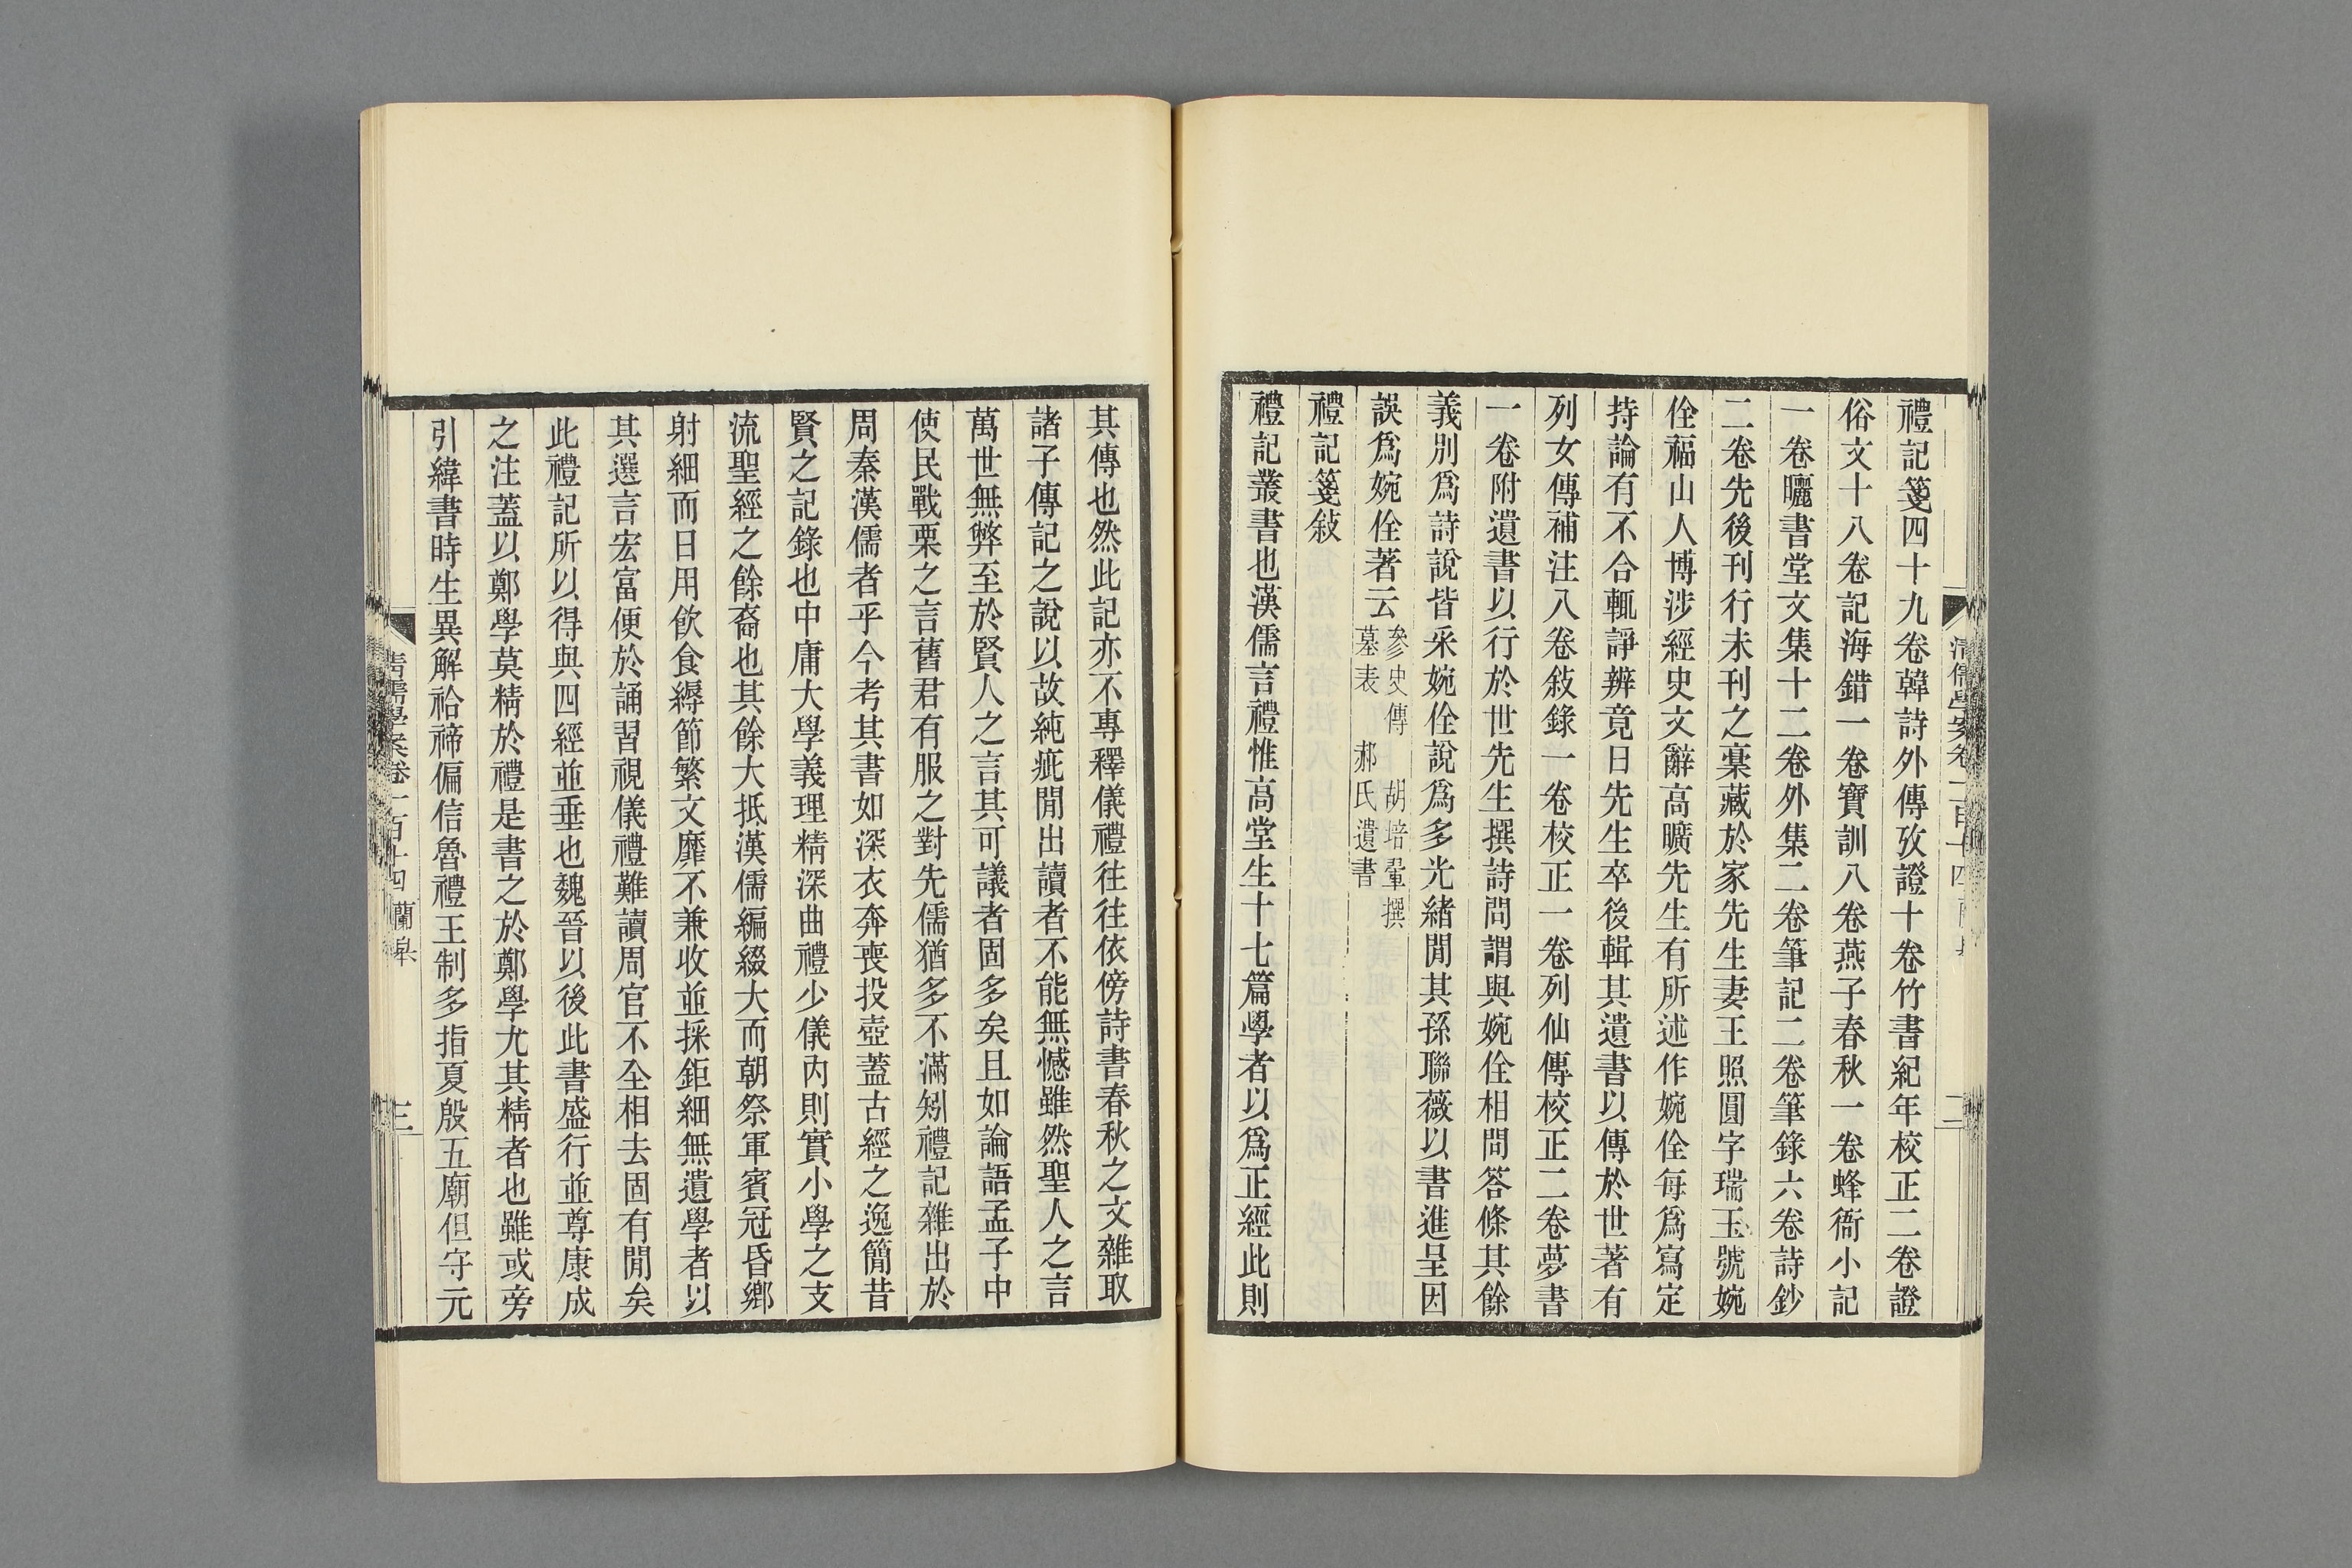 禮記箋四十九卷韓詩外傳攷證十卷竹書紀年校正二卷證
俗文十八卷記海錯一卷寶訓八卷燕子春秋一卷蜂衙小記
一卷曬書堂文集十二卷外集二卷筆記二卷筆錄六卷詩鈔
二卷先後刊行未刊之稾藏於家先生妻王照圓字瑞玉號婉
佺福山人博涉經史文辭高曠先生有所述作婉佺每爲寫定
持論有不合輒諍辨竟日先生卒後輯其遺書以傳於世著有
列女傳補注八卷敍錄一卷校正一卷列仙傳校正二卷夢書
一卷附遺書以行於世先生撰詩問謂與婉佺相問答條其餘
義別爲詩說皆采婉佺說爲多光緖閒其孫聯薇以書進呈因
誤爲婉佺著云參史傳 胡培翬撰墓表 郝氏遺書
禮記箋敍
禮記叢書也漢儒言禮惟高堂生十七篇學者以爲正經此則
其傳也然此記亦不專釋儀禮往往依傍詩書春秋之文雜取
諸子傳記之說以故純疵閒出讀者不能無憾雖然聖人之言
萬世無弊至於賢人之言其可議者固多矣且如論語孟子中
使民戰栗之言舊君有服之對先儒猶多不滿矧禮記雜出於
周秦漢儒者乎今考其書如深衣奔喪投壺蓋古經之逸簡昔
賢之記錄也中庸大學義理精深曲禮少儀內則實小學之支
流聖經之餘裔也其餘大抵漢儒編綴大而朝祭軍賓冠昏鄉
射細而日用飲食縟節繁文靡不兼收並採鉅細無遺學者以
其選言宏富便於誦習視儀禮難讀周官不全相去固有閒矣
此禮記所以得與四經並垂也魏晉以後此書盛行並尊康成
之注蓋以鄭學莫精於禮是書之於鄭學尤其精者也雖或旁
引緯書時生異解祫禘偏信魯禮王制多指夏殷五廟但守元
清儒學案卷一百十四 蘭皐
三